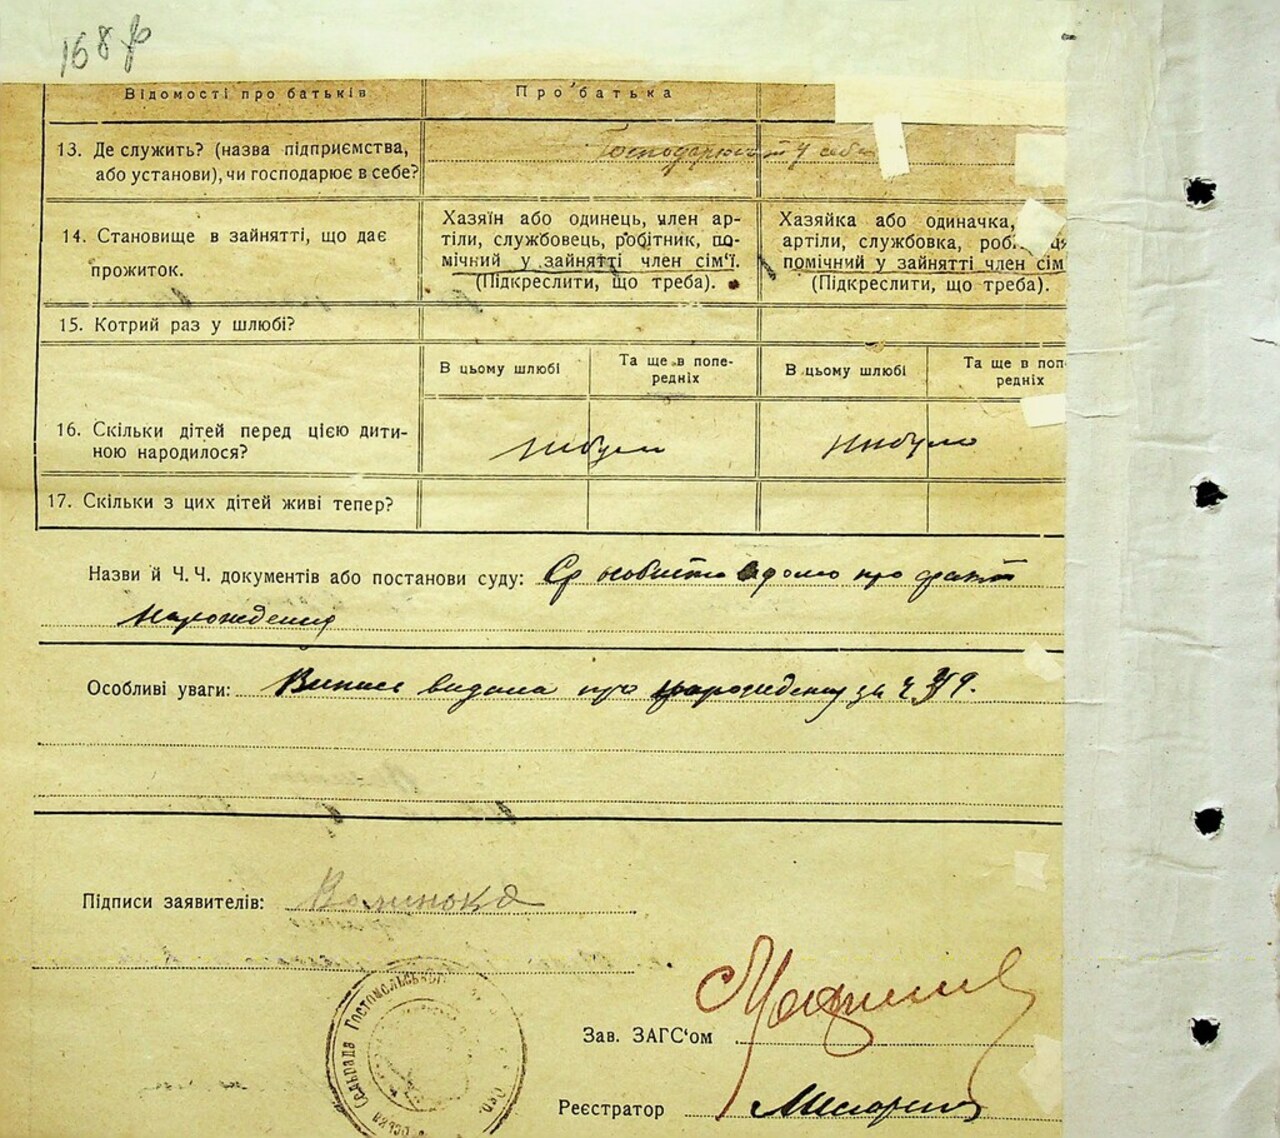 168
Відомості про батьків
Про батька
13. Де служить? (назва підприємства,
або установи), чи господарює в себе?
Господарюють у себе
14. Становище в зайнятті, що дає
прожиток.
Хазяїн або одинець, член ар-
тіли, службовець, робітник, по-
мічний у зайнятті член сім'ї.
(Підкреслити, що треба).
Хазяйка або одиначка,
артіли, службовка, робі
помічний у зайнятті член сім
(Підкреслити, що треба).
15. Котрий раз у шлюбі?
В цьому шлюбі
Та ще в попе-
редніх
В цьому шлюбі
Та ще в поп
редніх
16. Скільки дітей перед цією дити-
ною народилося?
17. Скільки з цих дітей живі тепер?
Назви й Ч.Ч. документів або постанови суду: про факт
нарождения
Особливі уваги: Випись видана про за ч
Підписи заявителів:
Сільрада Гостомольського
Зав. ЗАГС'ом
Реєстратор